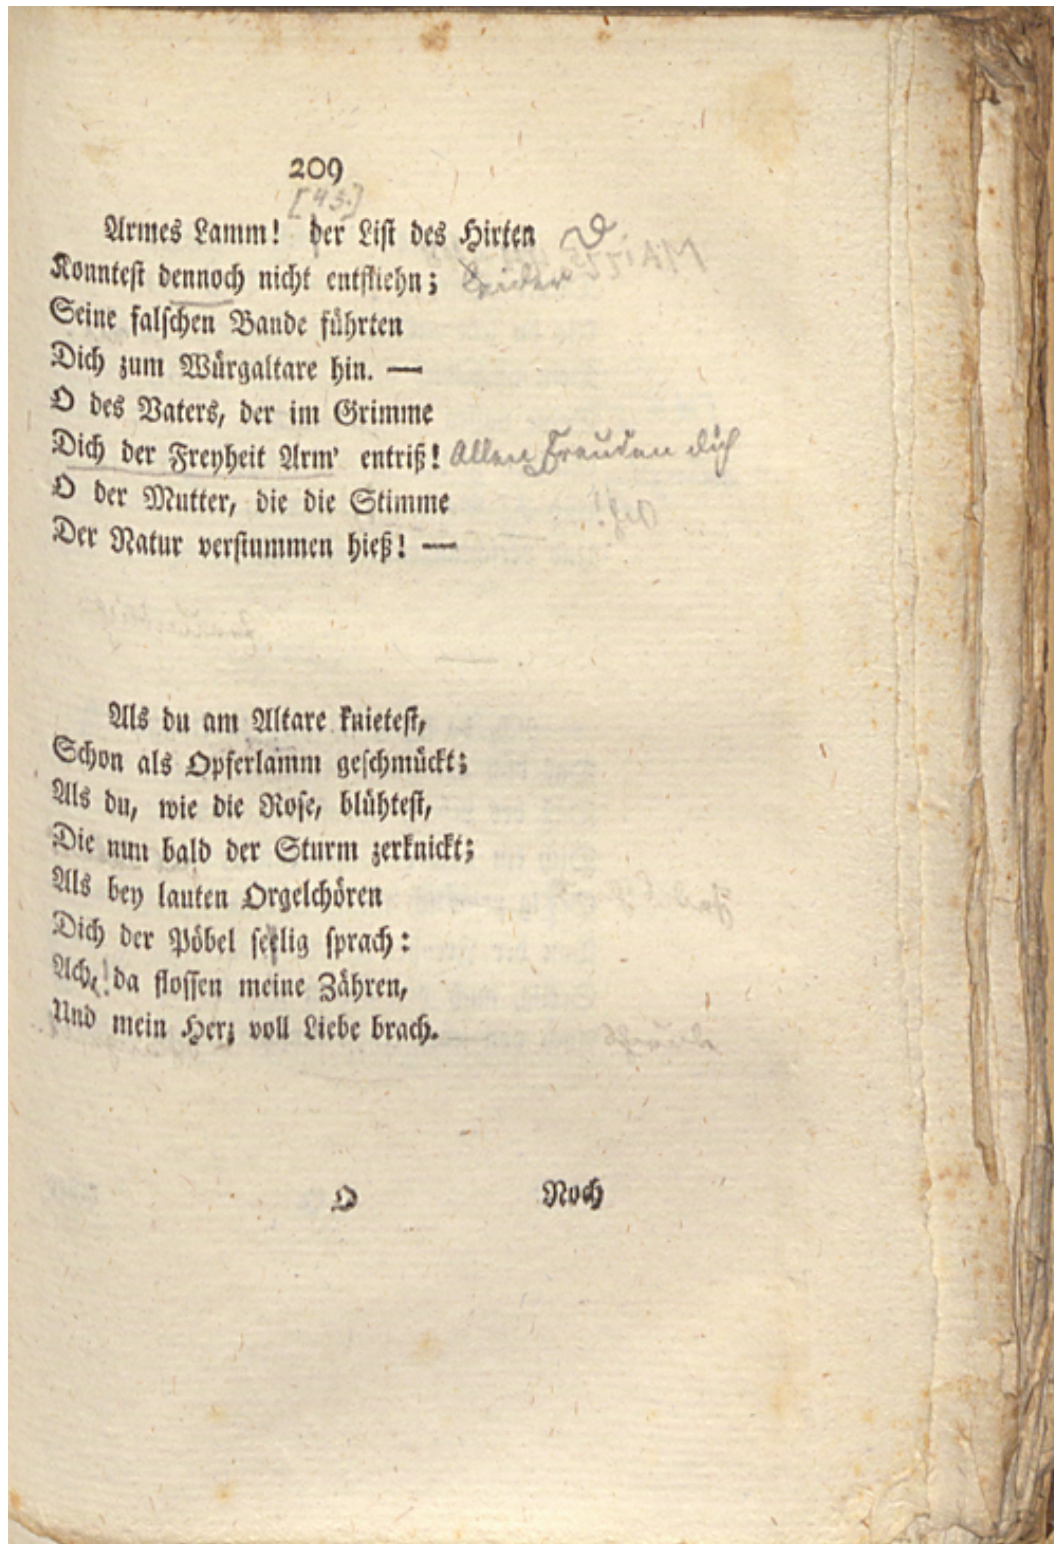 209
[43.]
Armes Lamm! der List des Hirten D
Konntest dennoch nicht entfliehn; Leider
Seine falschen Bande führten
Dich zum Würgaltare hin. —
O des Vaters, der im Grimme
Dich der Freyheit Arm' entriß! Allen Freuden dich
O der Mutter, die die Stimme
Der Natur verstummen hieß! —
Als du am Altare knietest,
Schon als Opferlamm geschmückt;
Als du, wie die Rose, blühtest,
Die nun bald der Sturm zerknickt;
Als bey lauten Orgelchören
Dich der Pöbel seelig sprach:
Ach, ! da flossen meine Zähren,
Und mein Herz voll Liebe brach.
O Noch